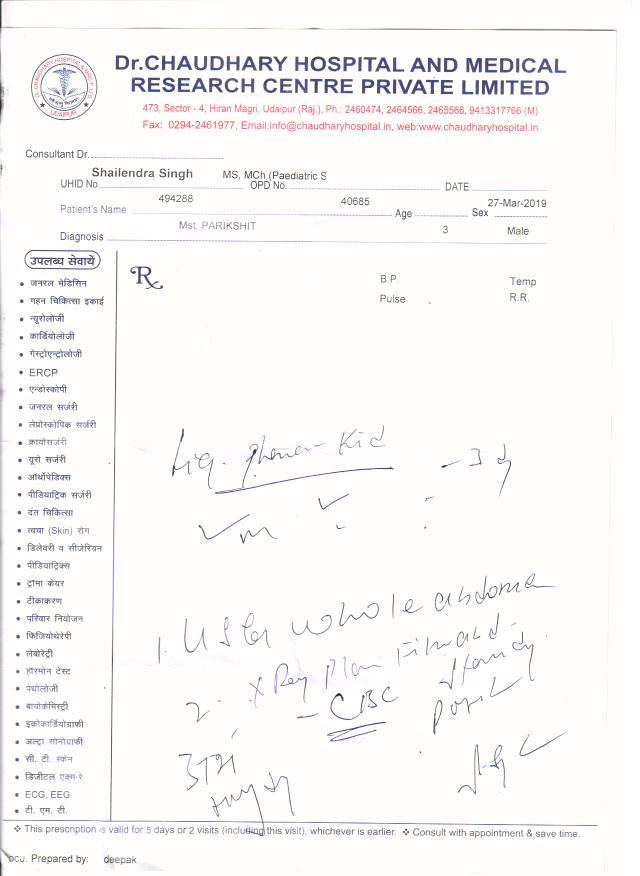 Dr.CHAUDHARY HOSPITAL AND MEDICAL
RESEARCH CENTRE PRIVATE LIMITED
473, Sector - 4, Hiran Magri, Udaipur (Raj.), Ph.: 2460474, 2464566, 2465566, 9413317766 (M)
Fax: 0294-2461977, Email:info@chaudharyhospital.in, web:www.chaudharyhospital.in
UDAIPUR
Consultant Dr.
Shailendra Singh MS, MCh (Paediatric S
UHID No. OPD No. DATE
494288 40685 27-Mar-2019
Patient's Name Age Sex
Mst. PARIKSHIT 3 Male
Diagnosis
उपलब्ध सेवायें
• जनरल मेडिसिन
• गहन चिकित्सा इकाई
• न्यूरोलोजी
• कार्डियोलोजी
• गेस्ट्रोएन्ट्रोलोजी
• ERCP
• एन्डोस्कोपी
• जनरल सर्जरी
• लेप्रोस्कोपिक सर्जरी
• क्रायोसर्जरी
• यूरो सर्जरी
• ऑर्थोपेडिक्स
• पीडियाट्रिक सर्जरी
• दंत चिकित्सा
• त्वचा (Skin) रोग
• डिलेवरी व सीजेरियन
• पीडियाट्रिक्स
• ट्रॉमा केयर
• टीकाकरण
• परिवार नियोजन
• फिजियोथेरेपी
• लेबोरेट्री
• हॉरमोन टेस्ट
• पेथोलोजी
• बायोकेमिस्ट्री
• इकोकार्डियोग्राफी
• अल्ट्रा सोनोग्राफी
• सी. टी. स्केन
• डिजीटल एक्स-रे
• ECG, EEG
• टी. एम. टी.
Rx
B.P. Temp
Pulse R.R.
Liq. Kid
1. USG whole abdome
2. X Ray Plan
- CBC
❖ This prescription is valid for 5 days or 2 visits (including this visit), whichever is earlier. ❖ Consult with appointment & save time.
ocu. Prepared by: deepak